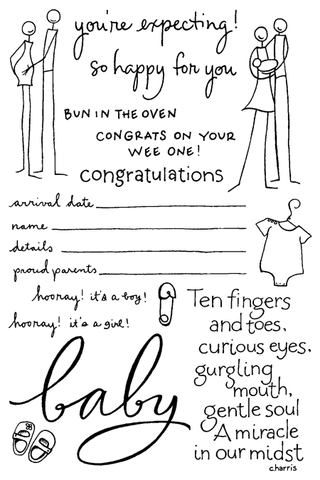 you're expecting!
so happy for you
BUN IN THE OVEN
CONGRATS ON YOUR
WEE ONE!
congratulations
arrival date
name
details
proud parents
hooray! it's a boy!
hooray! it's a girl!
baby
Ten fingers
and toes,
curious eyes,
gurgling
mouth,
gentle soul
A miracle
in our midst
c.harris